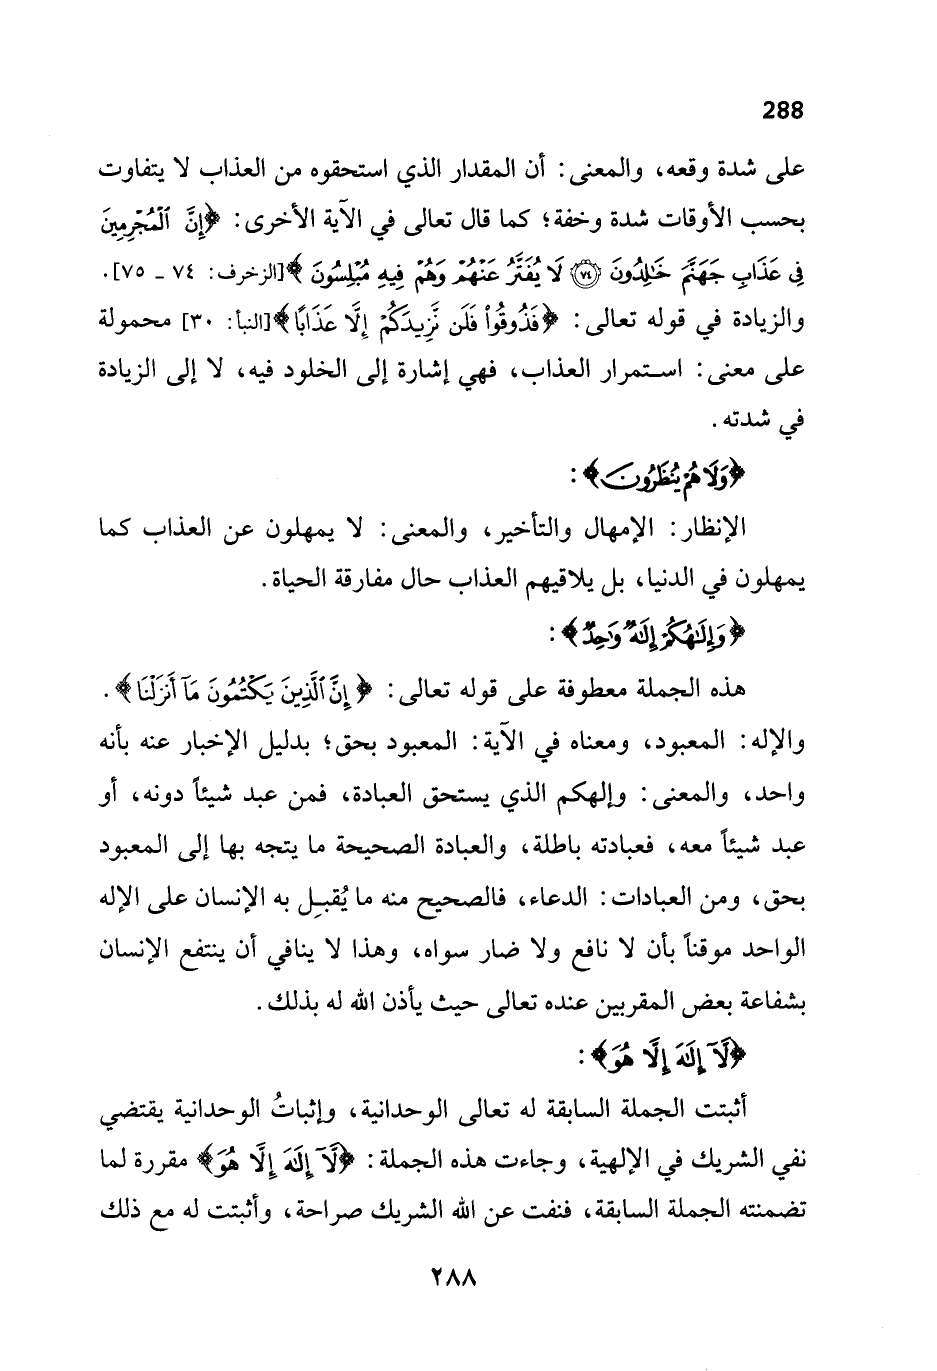 288
على شدة وقعه، والمعنى: أن المقدار الذي استحقوه من العذاب لا يتفاوت
بحسب الأوقات شدة وخفة؛ كما قال تعالى في الآية الأخرى: ﴿إِنَّ ٱلْمُجْرِمِينَ
فِى عَذَابِ جَهَنَّمَ خَـٰلِدُونَ ۝٧٤ لَا يُفَتَّرُ عَنْهُمْ وَهُمْ فِيهِ مُبْلِسُونَ﴾ [الزخرف: ٧٤ ـ ٧٥].
والزيادة في قوله تعالى: ﴿فَذُوقُوا۟ فَلَن نَّزِيدَكُمْ إِلَّا عَذَابًا﴾ [النبأ: ٣٠] محمولة
على معنى: استمرار العذاب، فهي إشارة إلى الخلود فيه، لا إلى الزيادة
في شدته.
﴿وَلَا هُمْ يُنظَرُونَ﴾:
الإنظار: الإمهال والتأخير، والمعنى: لا يمهلون عن العذاب كما
يمهلون في الدنيا، بل يلاقيهم العذاب حال مفارقة الحياة.
﴿وَإِلَـٰهُكُمْ إِلَـٰهٌ وَٰحِدٌ﴾:
هذه الجملة معطوفة على قوله تعالى: ﴿إِنَّ ٱلَّذِينَ يَكْتُمُونَ مَآ أَنزَلْنَا﴾.
والإله: المعبود، ومعناه في الآية: المعبود بحق؛ بدليل الإخبار عنه بأنه
واحد، والمعنى: وإلهكم الذي يستحق العبادة، فمن عبد شيئاً دونه، أو
عبد شيئاً معه، فعبادته باطلة، والعبادة الصحيحة ما يتجه بها إلى المعبود
بحق، ومن العبادات: الدعاء، فالصحيح منه ما يُقبِل به الإنسان على الإله
الواحد موقناً بأن لا نافع ولا ضار سواه، وهذا لا ينافي أن ينتفع الإنسان
بشفاعة بعض المقربين عنده تعالى حيث يأذن الله له بذلك.
﴿لَّآ إِلَـٰهَ إِلَّا هُوَ﴾:
أثبتت الجملة السابقة له تعالى الوحدانية، وإثباتُ الوحدانية يقتضي
نفي الشريك في الإلهية، وجاءت هذه الجملة: ﴿لَّآ إِلَـٰهَ إِلَّا هُوَ﴾ مقررة لما
تضمنته الجملة السابقة، فنفت عن الله الشريك صراحة، وأثبتت له مع ذلك
٢٨٨